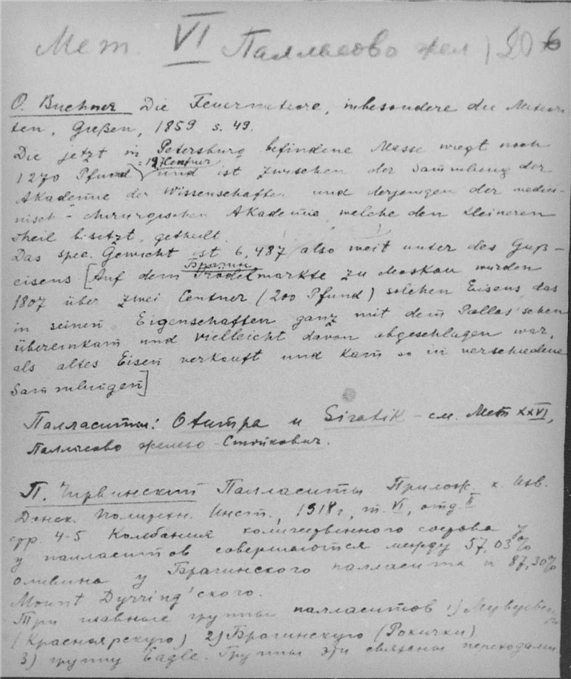 Мет. VI Палласово жел 206
O. Buchner Die Feuermeteore, insbesondere die Meteori-
ten, Gießen, 1859 s. 49.
Die jetzt in Petersburg befindene Masse wiegt noch
= 19 Centner
1270 Pfund und ist zwischen der Sammlung der
Akademie der Wissenschaften und derjenigen der medici-
nisch-chirurgischen Akademie, welche den kleineren
Theil besitzt, getheilt.
Das spec. Gewicht ist 6,487 also weit unter des Guß-
eisens [Auf dem Trödelmarkte zu Moskau wurden
1807 über zwei Centner (200 Pfund) solchen Eisens das
in seinen Eigenschaften ganz mit dem Pallas'schen
übereinkam und vielleicht davon abgeschlagen war,
als altes Eisen verkauft und kam so in verschiedene
Sammlungen]
Палласиты: Отитра и - см. Мет XXVI,
Палласово железо - Стойкович.
П. Чирвинский Палласиты Прилож. к Изв.
Донск. Политехн. Инст., 1918 г., т. VI, отд. I
стр. 4-5 Колебания количественного состава у
у палласитов совершаются между 57,03%
оливина у Брагинского палласита и 87,30%
Mount Dyrring'ского.
Три главные группы палласитов 1)
(Красноярскую) 2) Брагинскую (Рокички)
3) группу Eagle. Группы эти связаны переходами